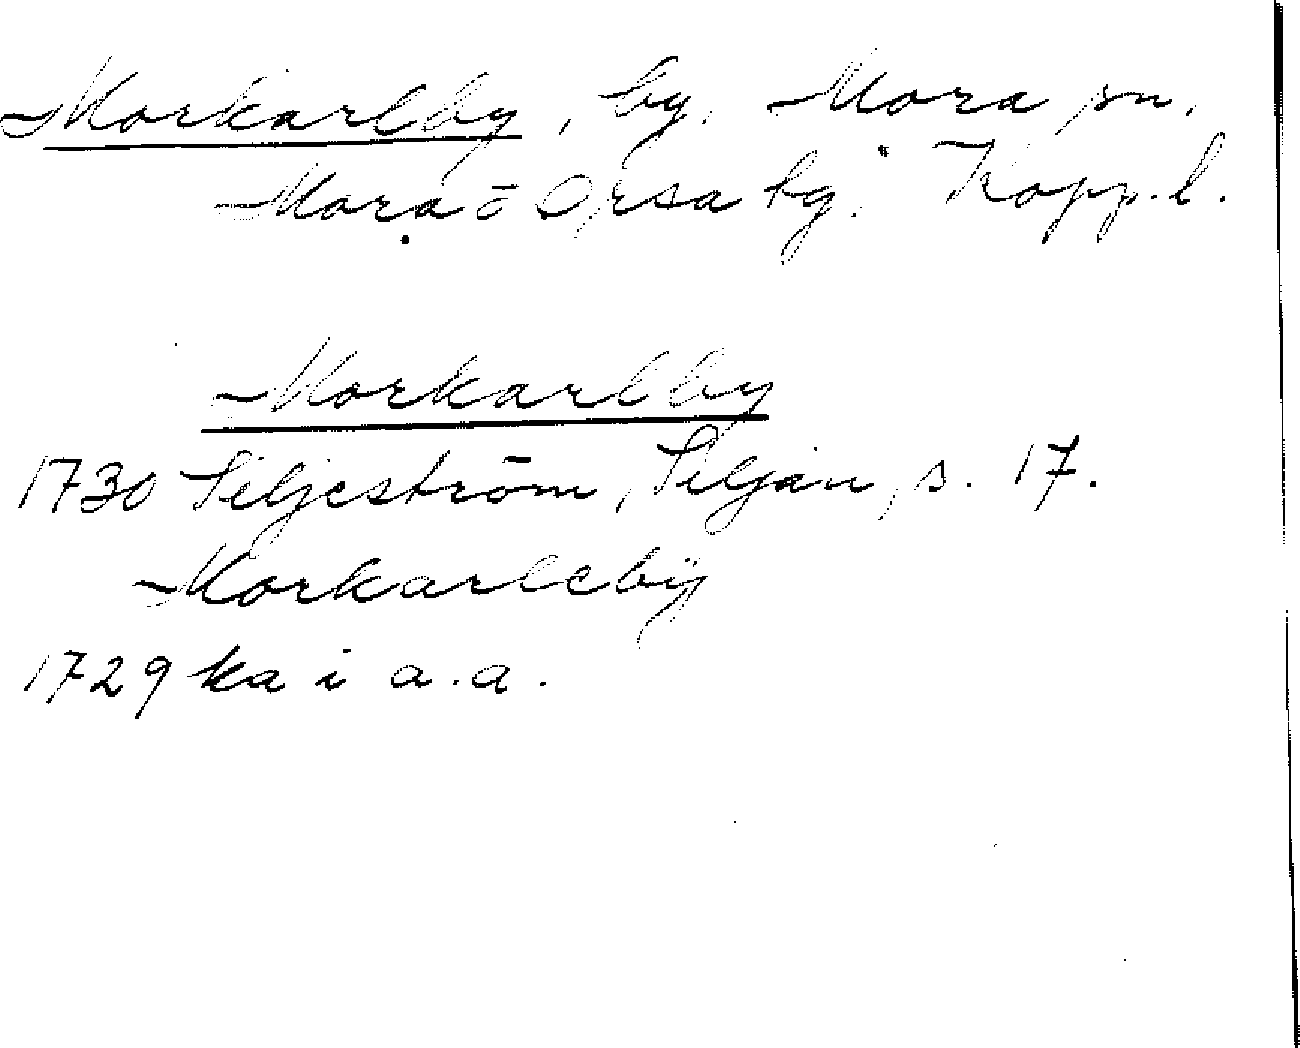 Morkarlby, by, Mora sn.
Mora o Orsa tg. Kopp. l.
Morkarlby
1730 Siljeström, Siljan, s. 17.
Morkarlebÿ
1729 ka i a.a.